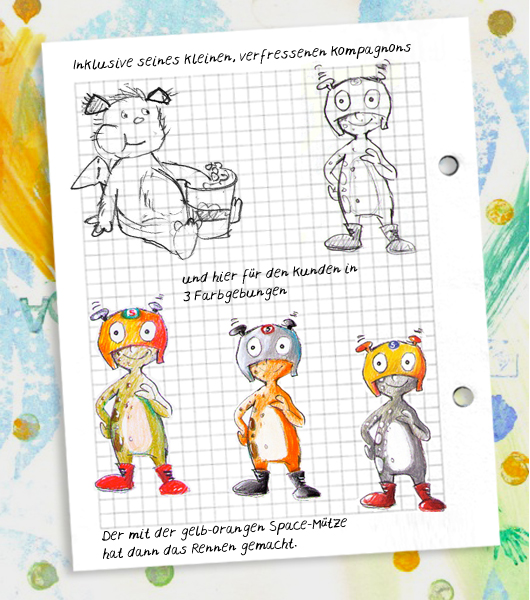 Inklusive seines kleinen, verfressenen Kompagnons
und hier für den Kunden in
3 Farbgebungen
5
5
5
Der mit der gelb-orangen Space-Mütze
hat dann das Rennen gemacht.